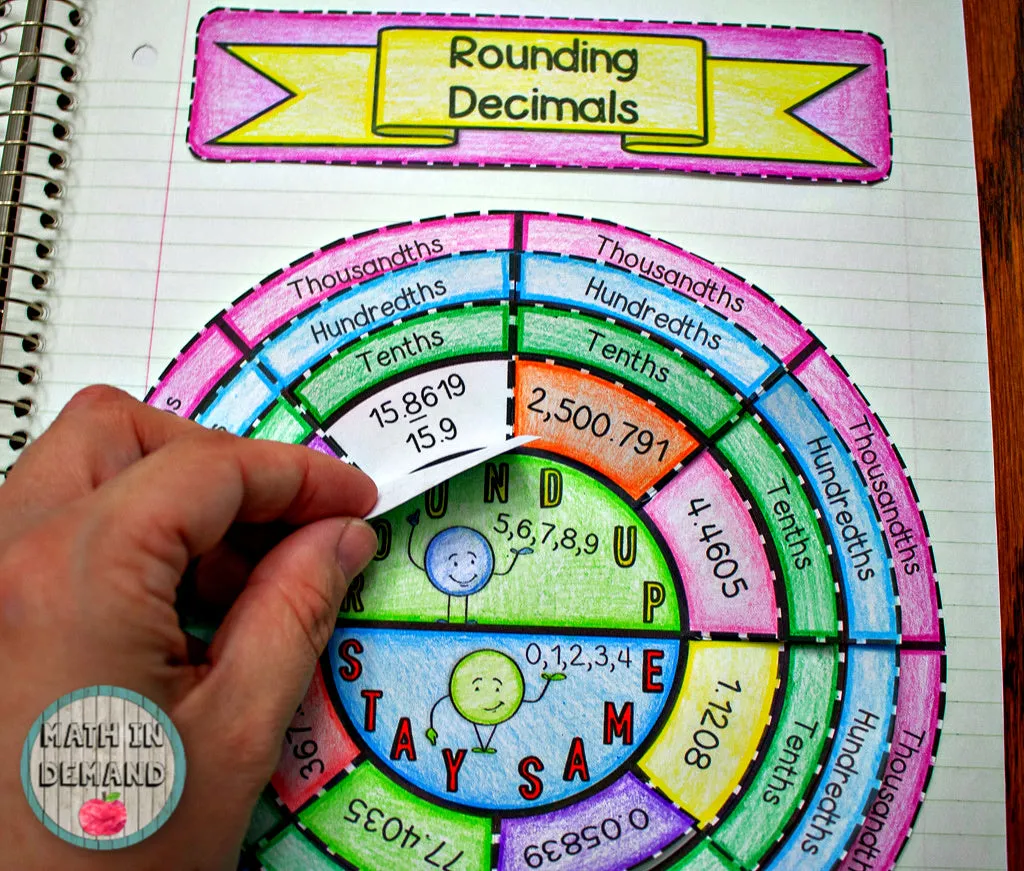 Rounding
Decimals
Thousandths
Thousandths
Hundredths
Hundredths
Tenths
Tenths
15.8619
15.9
2,500.791
Thousandths
Hundredths
Tenths
4.4605
ROUND UP
5,6,7,8,9
0,1,2,3,4
STAY SAME
1.1208
Tenths
Hundredths
0.05839
77.4035
MATH IN
DEMAND